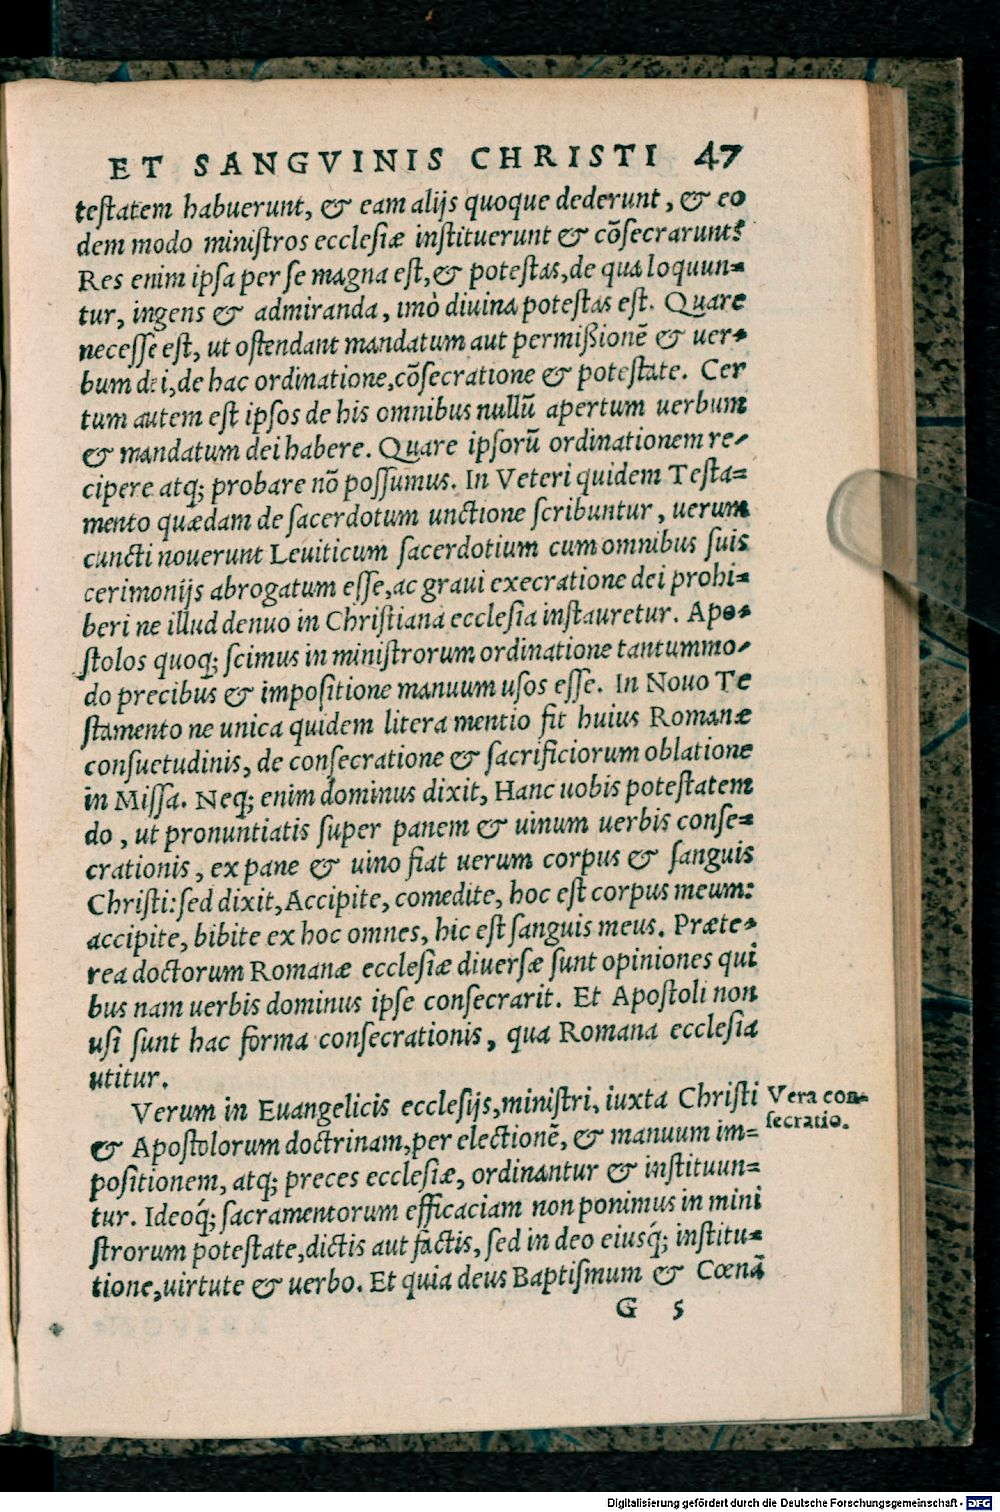 ET SANGVINIS CHRISTI 47
testatem habuerunt, & eam alijs quoque dederunt, & eo
dem modo ministros ecclesiæ instituerunt & cõsecrarunt?
Res enim ipsa per se magna est, & potestas, de qua loquun-
tur, ingens & admiranda, imò diuina potestas est. Quare
necesse est, ut ostendant mandatum aut permißionẽ & uer-
bum dei, de hac ordinatione, cõsecratione & potestate. Cer
tum autem est ipsos de his omnibus nullũ apertum uerbum
& mandatum dei habere. Quare ipsorũ ordinationem re-
cipere atq; probare nõ possumus. In Veteri quidem Testa-
mento quædam de sacerdotum unctione scribuntur, uerum
cuncti nouerunt Leuiticum sacerdotium cum omnibus suis
cerimonijs abrogatum esse, ac graui execratione dei prohi-
beri ne illud denuo in Christiana ecclesia instauretur. Apo-
stolos quoq; scimus in ministrorum ordinatione tantummo-
do precibus & impositione manuum usos esse. In Nouo Te
stamento ne unica quidem litera mentio fit huius Romanæ
consuetudinis, de consecratione & sacrificiorum oblatione
in Missa. Neq; enim dominus dixit, Hanc uobis potestatem
do, ut pronuntiatis super panem & uinum uerbis conse-
crationis, ex pane & uino fiat uerum corpus & sanguis
Christi: sed dixit, Accipite, comedite, hoc est corpus meum:
accipite, bibite ex hoc omnes, hic est sanguis meus. Præte-
rea doctorum Romanæ ecclesiæ diuersæ sunt opiniones qui
bus nam uerbis dominus ipse consecrarit. Et Apostoli non
usi sunt hac forma consecrationis, qua Romana ecclesia
utitur.
Verum in Euangelicis ecclesijs, ministri, iuxta Christi
Vera con-
secratio.
& Apostolorum doctrinam, per electionẽ, & manuum im-
positionem, atq; preces ecclesiæ, ordinantur & instituun-
tur. Ideoq́; sacramentorum efficaciam non ponimus in mini
strorum potestate, dictis aut factis, sed in deo eiusq́; institu-
tione, uirtute & uerbo. Et quia deus Baptismum & Cœnã
G 5
Digitalisierung gefördert durch die Deutsche Forschungsgemeinschaft - DFG